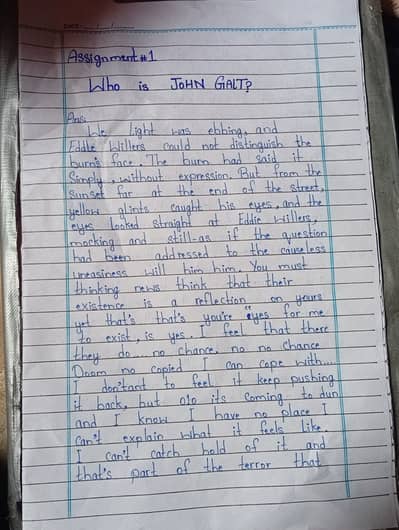 DATE:
Assignment #1
Who is JOHN GALT?
Ans.
He light was ebbing, and
Eddie Willers could not distinguish the
bum's face. The bum had said it
Simply, without expression. But from the
Sunset far at the end of the street,
yellow glints caught his eyes, and the
eyes looked straight at Eddie willers,
mocking and still-as if the question
had been addressed to the causeless
uneasiness will him him. You must
thinking news think that their
existence is a reflection on yours
yet that's that's you're eyes for me
to exist, is yes. I feel that there
they do.... no chance, no no chance
Doom no copied I can cope with....
I don't want to feel it keep pushing
it back, but its coming to dun
and I know I have no place I
can't explain what it feels like.
I can't catch hold of it and
that's part of the terror that